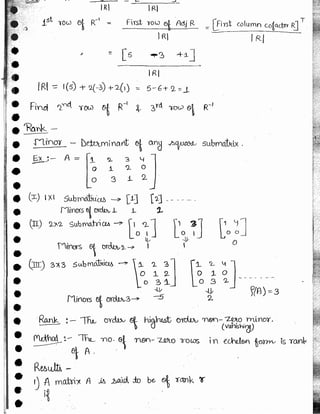 |R| |R|
1st row of R⁻¹ = First row of Adj R = [First column cofactor R]ᵀ
|R| |R|
= [5 -3 +1]
|R|
|R| = 1(5) + 2(-3) + 2(1) = 5-6+2 = 1
Find 2nd row of R⁻¹ & 3rd row of R⁻¹
Rank -
Minor - Determinant of any square submatrix.
Ex:- A = [1 2 3 4
0 1 2 0
0 3 1 2]
(I) 1x1 Submatrices → [1] [2] - - - - -
Minors of order 1 1 2
(II) 2x2 Submatrices → [1 2 [1 3 [1 4
0 1] 0 1] 0 0]
Minors of order 2 → 1 1 0
(III) 3x3 Submatrices → [1 2 3 [1 2 4
0 1 2 0 1 0
0 3 1] 0 3 2] - - - - -
Minors of order 3 → -5 2 ρ(A) = 3
Rank :- The order of highest order non-zero minor.
(vanishing)
Method :- The no. of non-zero rows in echelon form is rank
of A.
Results -
1) A matrix A is said to be of rank r
if